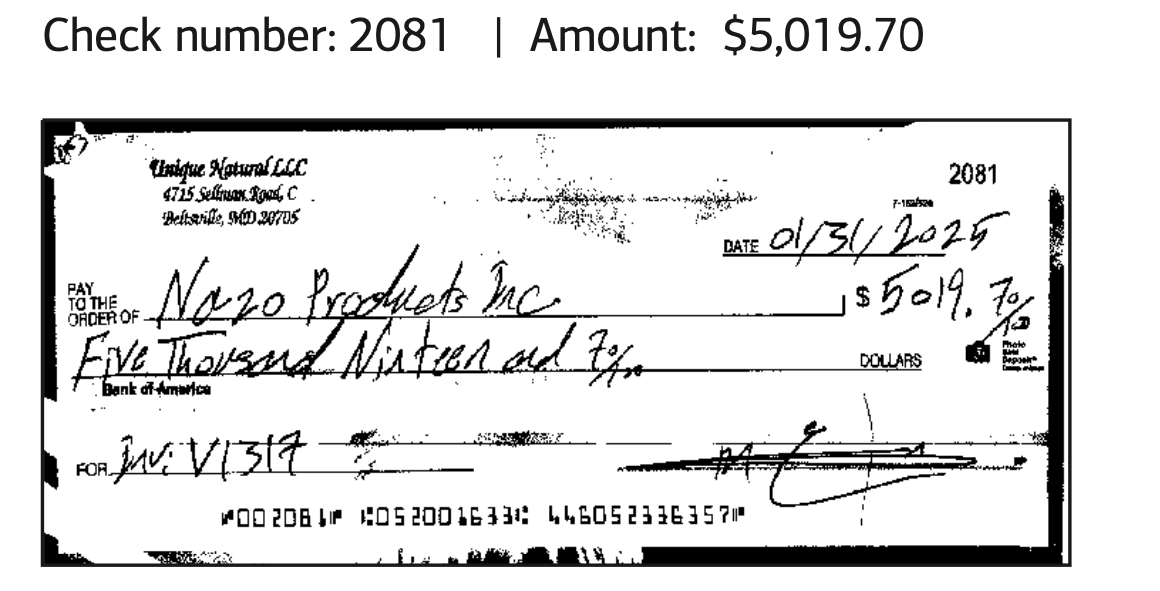 Check number: 2081 | Amount: $5,019.70
Unique Natural LLC
4715 Sellman Road, C
Beltsville, MD 20705
2081
DATE 01/31/2025
PAY TO THE ORDER OF Nazo Products Inc $ 5019. 70/100
Five Thousand Ninteen and 70/100 DOLLARS
Photo
Deposit
Bank of America
FOR Inv: V1317
⑈002081⑈ ⑆052001633⑆ 446052336357⑈